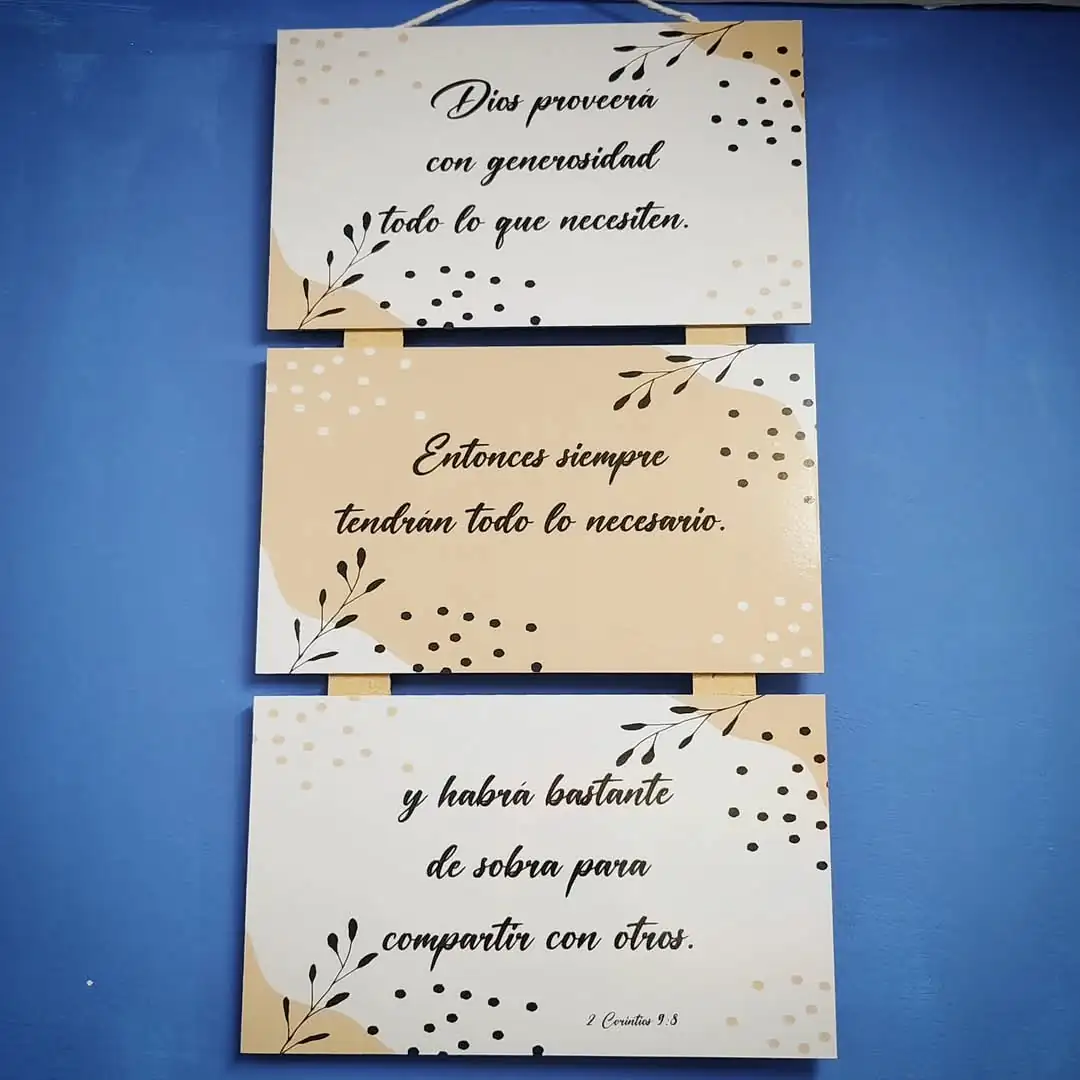 Dios proveerá
con generosidad
todo lo que necesiten.
Entonces siempre
tendrán todo lo necesario.
y habrá bastante
de sobra para
compartir con otros.
2 Corintios 9:8